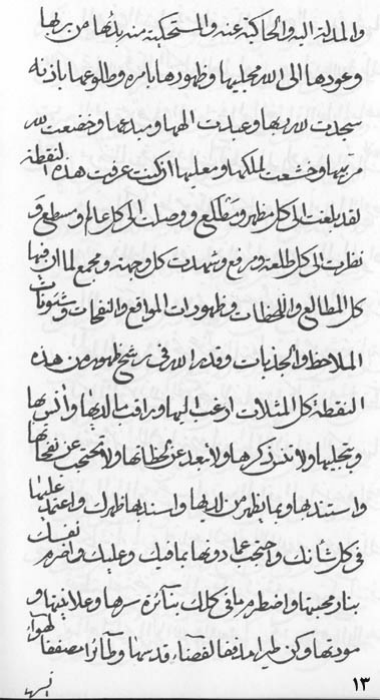 والمدلة اليه والحاكية عنه والمستحكية منه بدئها من ربها
وعودها الى الله مجليها وظهورها بامره وطلوعها باذنه
سجدت لله ربها وعبدت الهها ومبدعها وخضعت لله
مربيها وخشعت لملكها ومعليها اذا كنت عرفت هذه النقطة
لقد بلغت الى كل مظهر ومطلع ووصلت الى كل عالم ومسطع و
نظرت الى كل طلعة ومرفع وشهدت كل وجهة ومجمع لما ان فيها
كل المطالع واللحظات وظهورات المواقع والنفحات وشئونات
الملاحظ والجذبات وقدر الله في ترشح ظهور من هذه
النقطة كل المثلات ارغب اليها ورافت لديها وآنس بها
وتجليها ولا تنس ذكرها ولا تبعد عن لحظاتها ولا تحتجب عن نفحاتها
واستند بها وبما يظهر من لديها واسند بها ظهرك واعتمد عليها
في كل شأنك واحتجب عما دونها بما فيك وعليك واضرم نفسك
بنار محبتها واضطرم ما في كلك بنآئرة سرها وعلانيتها و
مودتها وكن طيرا لفضآء قدسها وطآئرا لهوآء
انسها
١٣